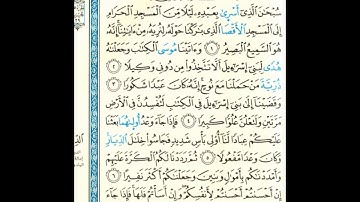 سُبْحَٰنَ ٱلَّذِىٓ أَسْرَىٰ بِعَبْدِهِۦ لَيْلًا مِّنَ ٱلْمَسْجِدِ ٱلْحَرَامِ
إِلَى ٱلْمَسْجِدِ ٱلْأَقْصَا ٱلَّذِى بَٰرَكْنَا حَوْلَهُۥ لِنُرِيَهُۥ مِنْ ءَايَٰتِنَآ إِنَّهُۥ
هُوَ ٱلسَّمِيعُ ٱلْبَصِيرُ ١ وَءَاتَيْنَا مُوسَى ٱلْكِتَٰبَ وَجَعَلْنَٰهُ
هُدًى لِّبَنِىٓ إِسْرَٰٓءِيلَ أَلَّا تَتَّخِذُوا۟ مِن دُونِى وَكِيلًا ٢
ذُرِّيَّةَ مَنْ حَمَلْنَا مَعَ نُوحٍ إِنَّهُۥ كَانَ عَبْدًا شَكُورًا ٣
وَقَضَيْنَآ إِلَىٰ بَنِىٓ إِسْرَٰٓءِيلَ فِى ٱلْكِتَٰبِ لَتُفْسِدُنَّ فِى ٱلْأَرْضِ
مَرَّتَيْنِ وَلَتَعْلُنَّ عُلُوًّا كَبِيرًا ٤ فَإِذَا جَآءَ وَعْدُ أُولَىٰهُمَا بَعَثْنَا
عَلَيْكُمْ عِبَادًا لَّنَآ أُو۟لِى بَأْسٍ شَدِيدٍ فَجَاسُوا۟ خِلَٰلَ ٱلدِّيَارِ
وَكَانَ وَعْدًا مَّفْعُولًا ٥ ثُمَّ رَدَدْنَا لَكُمُ ٱلْكَرَّةَ عَلَيْهِمْ
وَأَمْدَدْنَٰكُم بِأَمْوَٰلٍ وَبَنِينَ وَجَعَلْنَٰكُمْ أَكْثَرَ نَفِيرًا ٦
إِنْ أَحْسَنتُمْ أَحْسَنتُمْ لِأَنفُسِكُمْ وَإِنْ أَسَأْتُمْ فَلَهَا فَإِذَا جَآءَ